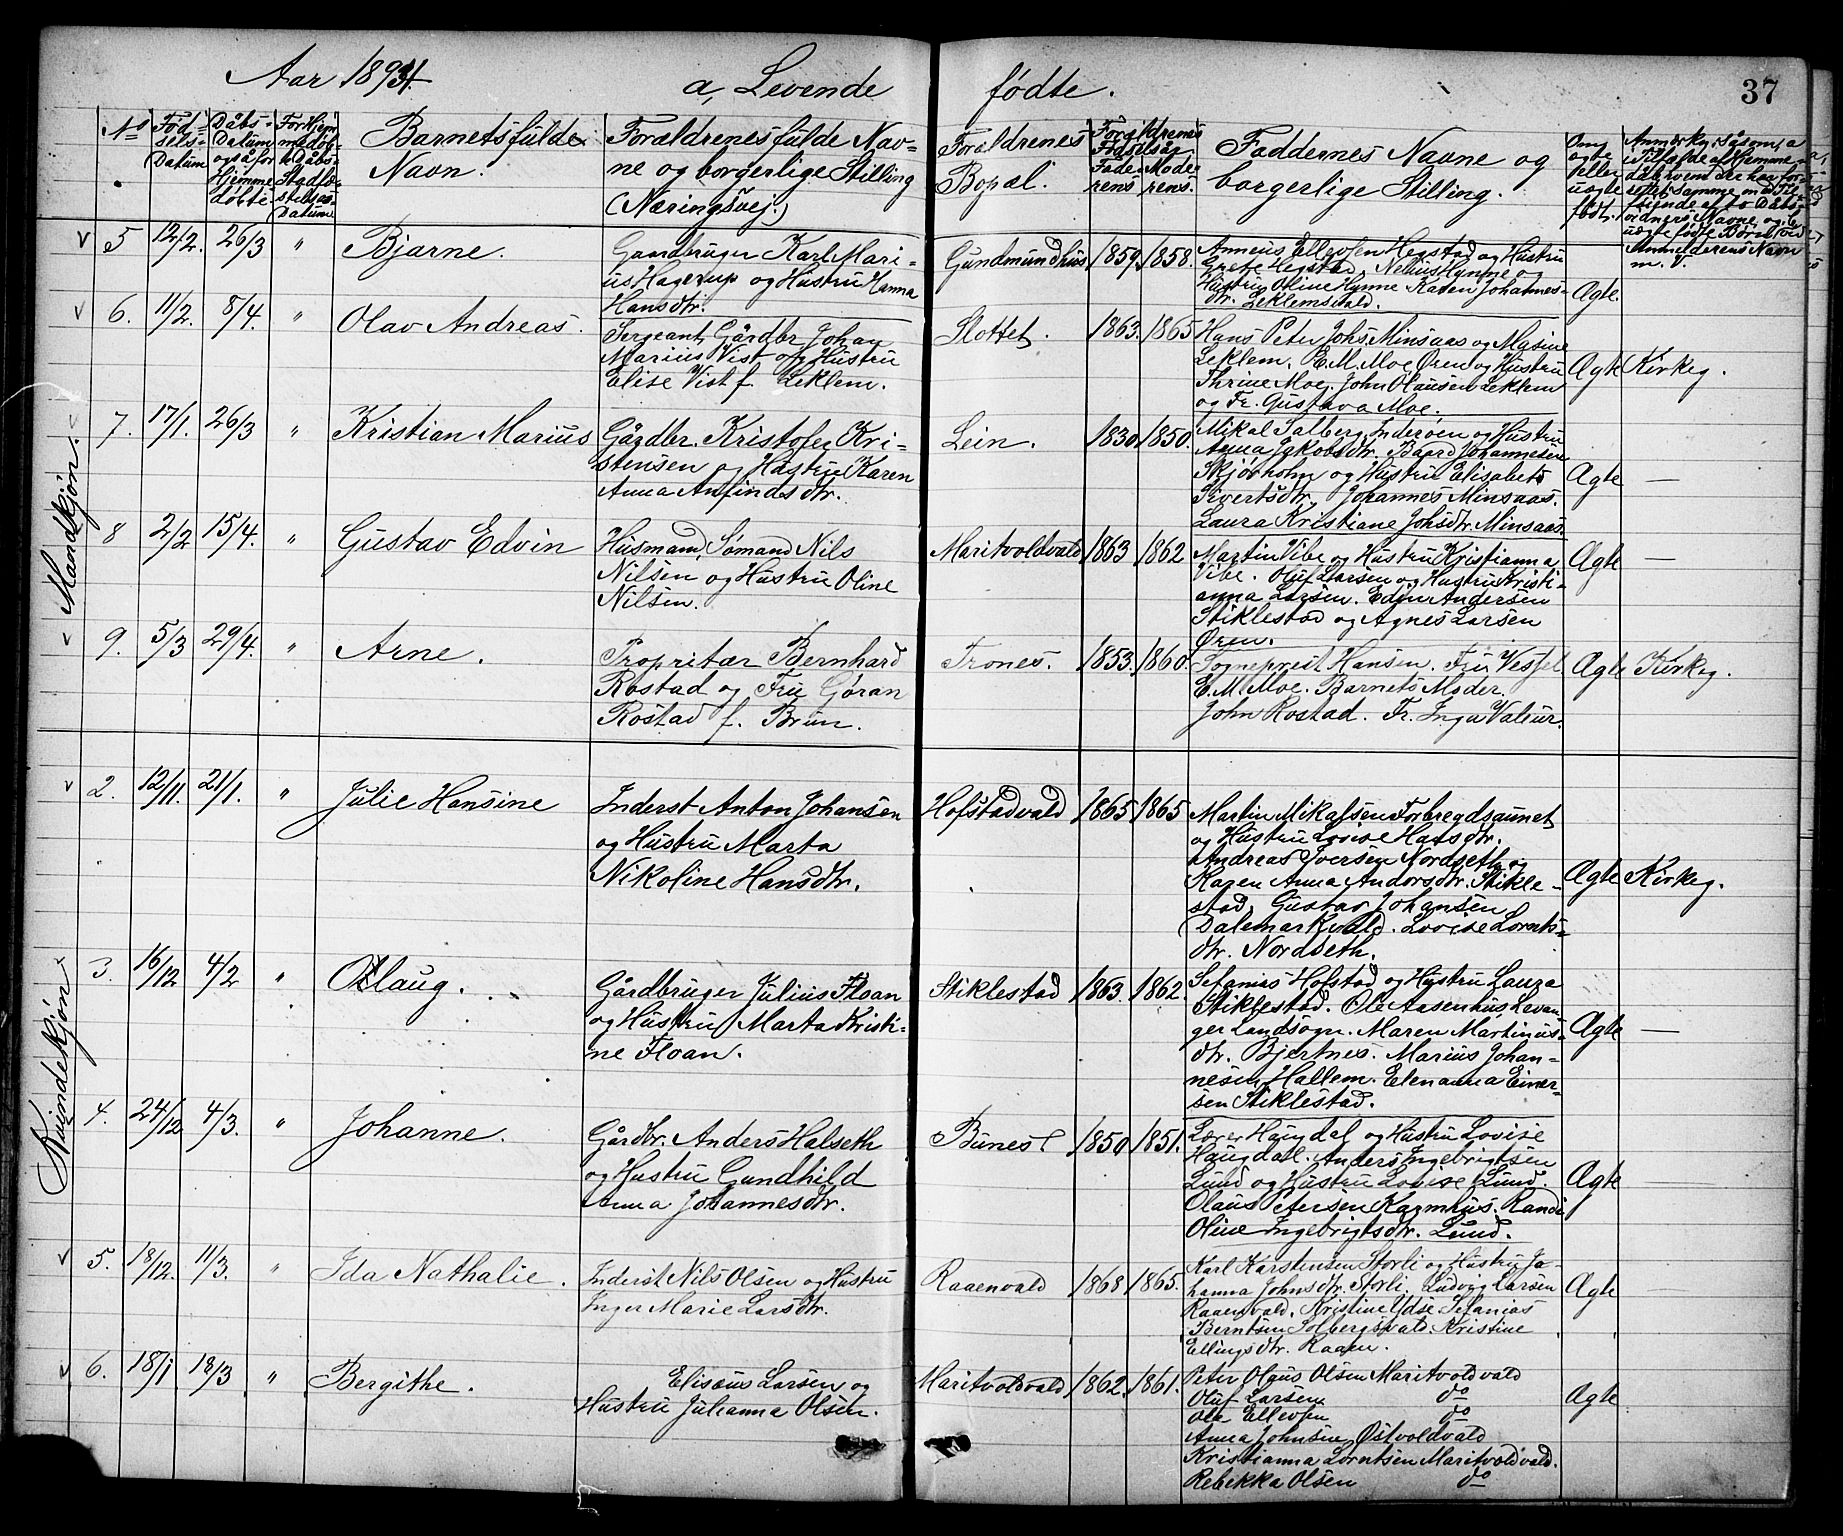 Aar 1894. a, Levende fødte. 37
No
Fødsels-Datum
Dåbs-Datum også for Hjemmedøbte
Barnets fulde Navn.
Forældrenes fulde Navne og borgerlige Stilling (Næringsvej.)
Forældrenes Bopæl.
Forældrenes Fødselsår Faderens Moderens.
Faddernes Navne og borgerlige Stilling.
Om ægte eller uægte født.
Mandkjøn.
5 12/2. 26/3 " Bjarne. Gundmundhus 1859. 1858. Ægte.
Gaardbruger Karl Mari-
us Hagerup og Hustru Hanna
Hansdtr.
Anneus Ellevsen Hegstad og Hustru
Grete Hegstad, Nelius Hynne og
Hustru Oline Hynne Karen Johannes-
dtr. Leklemsvald.
6. 11/2. 8/4. " Olav Andreas. Slottet. 1863. 1865 Ægte Kirkeg.
Sergeant, Gårdbr. Johan
Marius Vist og Hustru
Elise Vist f. Leklem.
Hans Peter Johs. Minsaas og Masine
Leklem. E. M. Moe Øren og Hustru
Thrine Moe. John Olausen Leklem
og Fr. Gustava Moe.
7. 17/1. 26/3 " Kristian Marius Lein. 1830. 1850. Ægte —
Gårdbr. Kristofer Kri-
stensen og Hustru Karen
Anna Anfindsdtr.
Mikal Salberg Inderøen og Hustru
Anna Jakobsdtr. Baard Johannesen
Skjørholm og Hustru Elisabeth
Sivertsdtr. Johannes Minsaas.
Laura Kristiane Johsdtr. Minsaas.
8 2/2 15/4. " Gustav Edvin Maritvoldvald 1863 1862 Ægte —
Husmand, Sømand Nils
Nilsen og Hustru Oline
Nilsen.
Martin Vibe og Hustru Kristianna
Vibe. Oluf Larsen og Hustru Kristi-
anna Larsen. Edin Andersen
Stiklestad og Agnes Larsen
Øren.
9. 5/3 29/4. " Arne. Trones. 1853. 1860. Ægte Kirkeg.
Proprietær Bernhard
Rostad og Fru Gøran
Rostad f. Brun.
Sogneprest Hansen. Fru Vessel
E. M. Moe. Barnets Moder.
John Rostad. Fr. Inga Valeur.
Kvindekjøn.
2. 12/11. 21/1. " Julie Hansine Hofstadvald 1865 1865 Ægte Kirkeg.
Inderst Anton Johansen
og Hustru Marta
Nikoline Hansdtr.
Martin Mikalsen Forbregdsaunet
og Hustru Lovise Hansdtr.
Andreas Iversen Nordseth og
Karen Anna Andorsdtr. Stikle-
stad. Gustav Johansen
Dalemarkvald. Lovise Lornts-
dtr. Nordseth.
3. 16/12 4/2 " Oslaug. Stiklestad 1863. 1862. Ægte —
Gårdbruger Julius Floan
og Hustru Marta Kristi-
ne Floan.
Sefanias Hofstad og Hustru Laura
Stiklestad. Ole Aasenhus Levan-
ger Landsogn. Maren Martinus-
dtr. Bjertnes. Marius Johan-
nesen Hallem. Elenanna Einer-
sen Stiklestad.
4. 24/12 4/3. " Johanne. Bunes 1850 1851. Ægte —
Gårdbr. Anders Halseth
og Hustru Gundhild
Anna Johannesdtr.
Lærer Haugdal og Hustru Lovise
Haugdal. Anders Ingebrigtsen
Lund og Hustru Lovise Lund.
Olaus Petersen Kagmhus. Randi
Oline Ingebrigtsdtr. Lund.
5. 18/12. 11/3. " Ida Nathalie. Raaenvald 1868 1865. Ægte
Inderst Nils Olsen og Hustru
Inger Marie Larsdtr.
Karl Karstensen Storli og Hustru Jo-
hanna Johnsdtr. Storli. Ludvig Larsen
Raaenvald. Kristine Ydse Sefanias
Berntsen Solbergsvald. Kristine
Ellingsdtr. Raaen.
6. 18/1 18/3 " Bergithe. Maritvoldvald 1862. 1861. Ægte
Elisæus Larsen og
Hustru Julianna Olsen.
Peter Olaus Olsen Maritvoldvald
Oluf Larsen do
Ole Ellevsen do
Anna Johnsen Østvoldvald
Kristianna Lorntsen Maritvoldvald.
Rebekka Olsen do